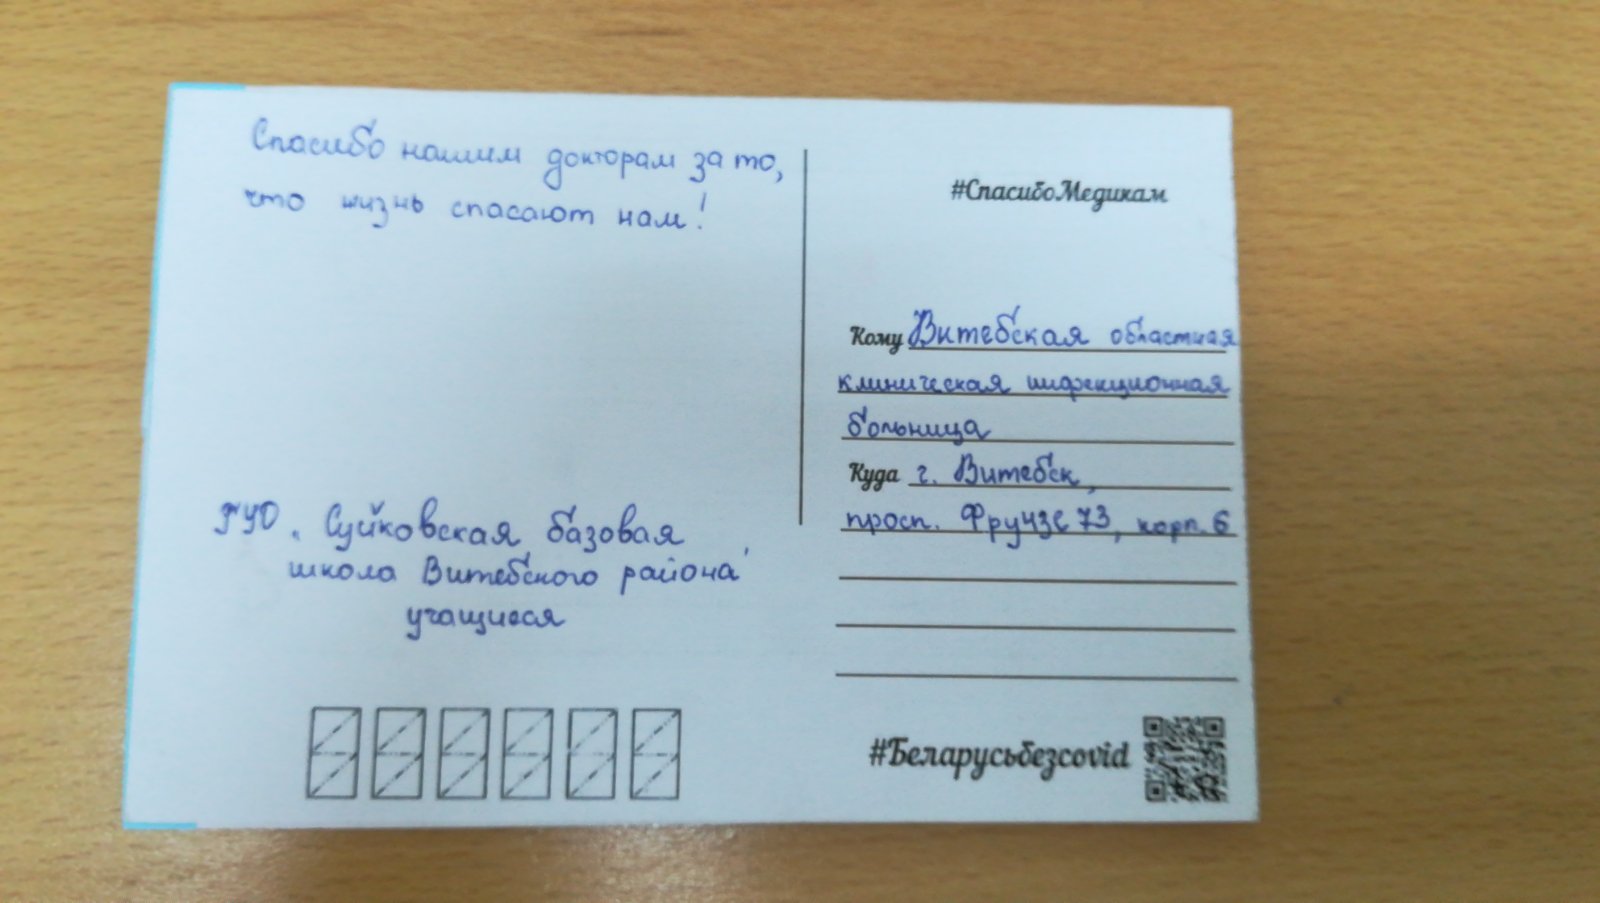 Спасибо нашим докторам за то,
что жизнь спасают нам!
ГУО "Суйковская базовая
школа Витебского района"
учащиеся
#СпасибоМедикам
Кому Витебская областная
клиническая инфекционная
больница
Куда г. Витебск,
просп. Фрунзе 73, корп. 6
#Беларусьбезcovid